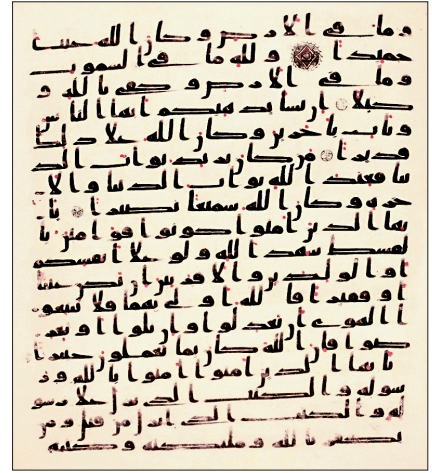 وما في الارض وكان الله غنيا
حميدا ولله ما في السموت
وما في الارض وكفى بالله و
كيلا ان يشا يذهبكم ايها الناس
ويات باخرين وكان الله على ذلك
قديرا من كان يريد ثواب الد
نيا فعند الله ثواب الدنيا والا
خرة وكان الله سميعا بصيرا يا
يها الذين امنوا كونوا قومين با
لقسط شهدا لله ولو على انفسكم
او الولدين والاقربين ان يكن غنيا
او فقيرا فالله اولى بهما فلا تتبعو
ا الهوى ان تعدلوا وان تلوا او تعر
ضوا فان الله كان بما تعملون خبيرا
يايها الذين امنوا امنوا بالله ور
سوله والكتب الذي نزل على رسو
له والكتب الذي انزل من قبل ومن
يكفر بالله وملئكته وكتبه